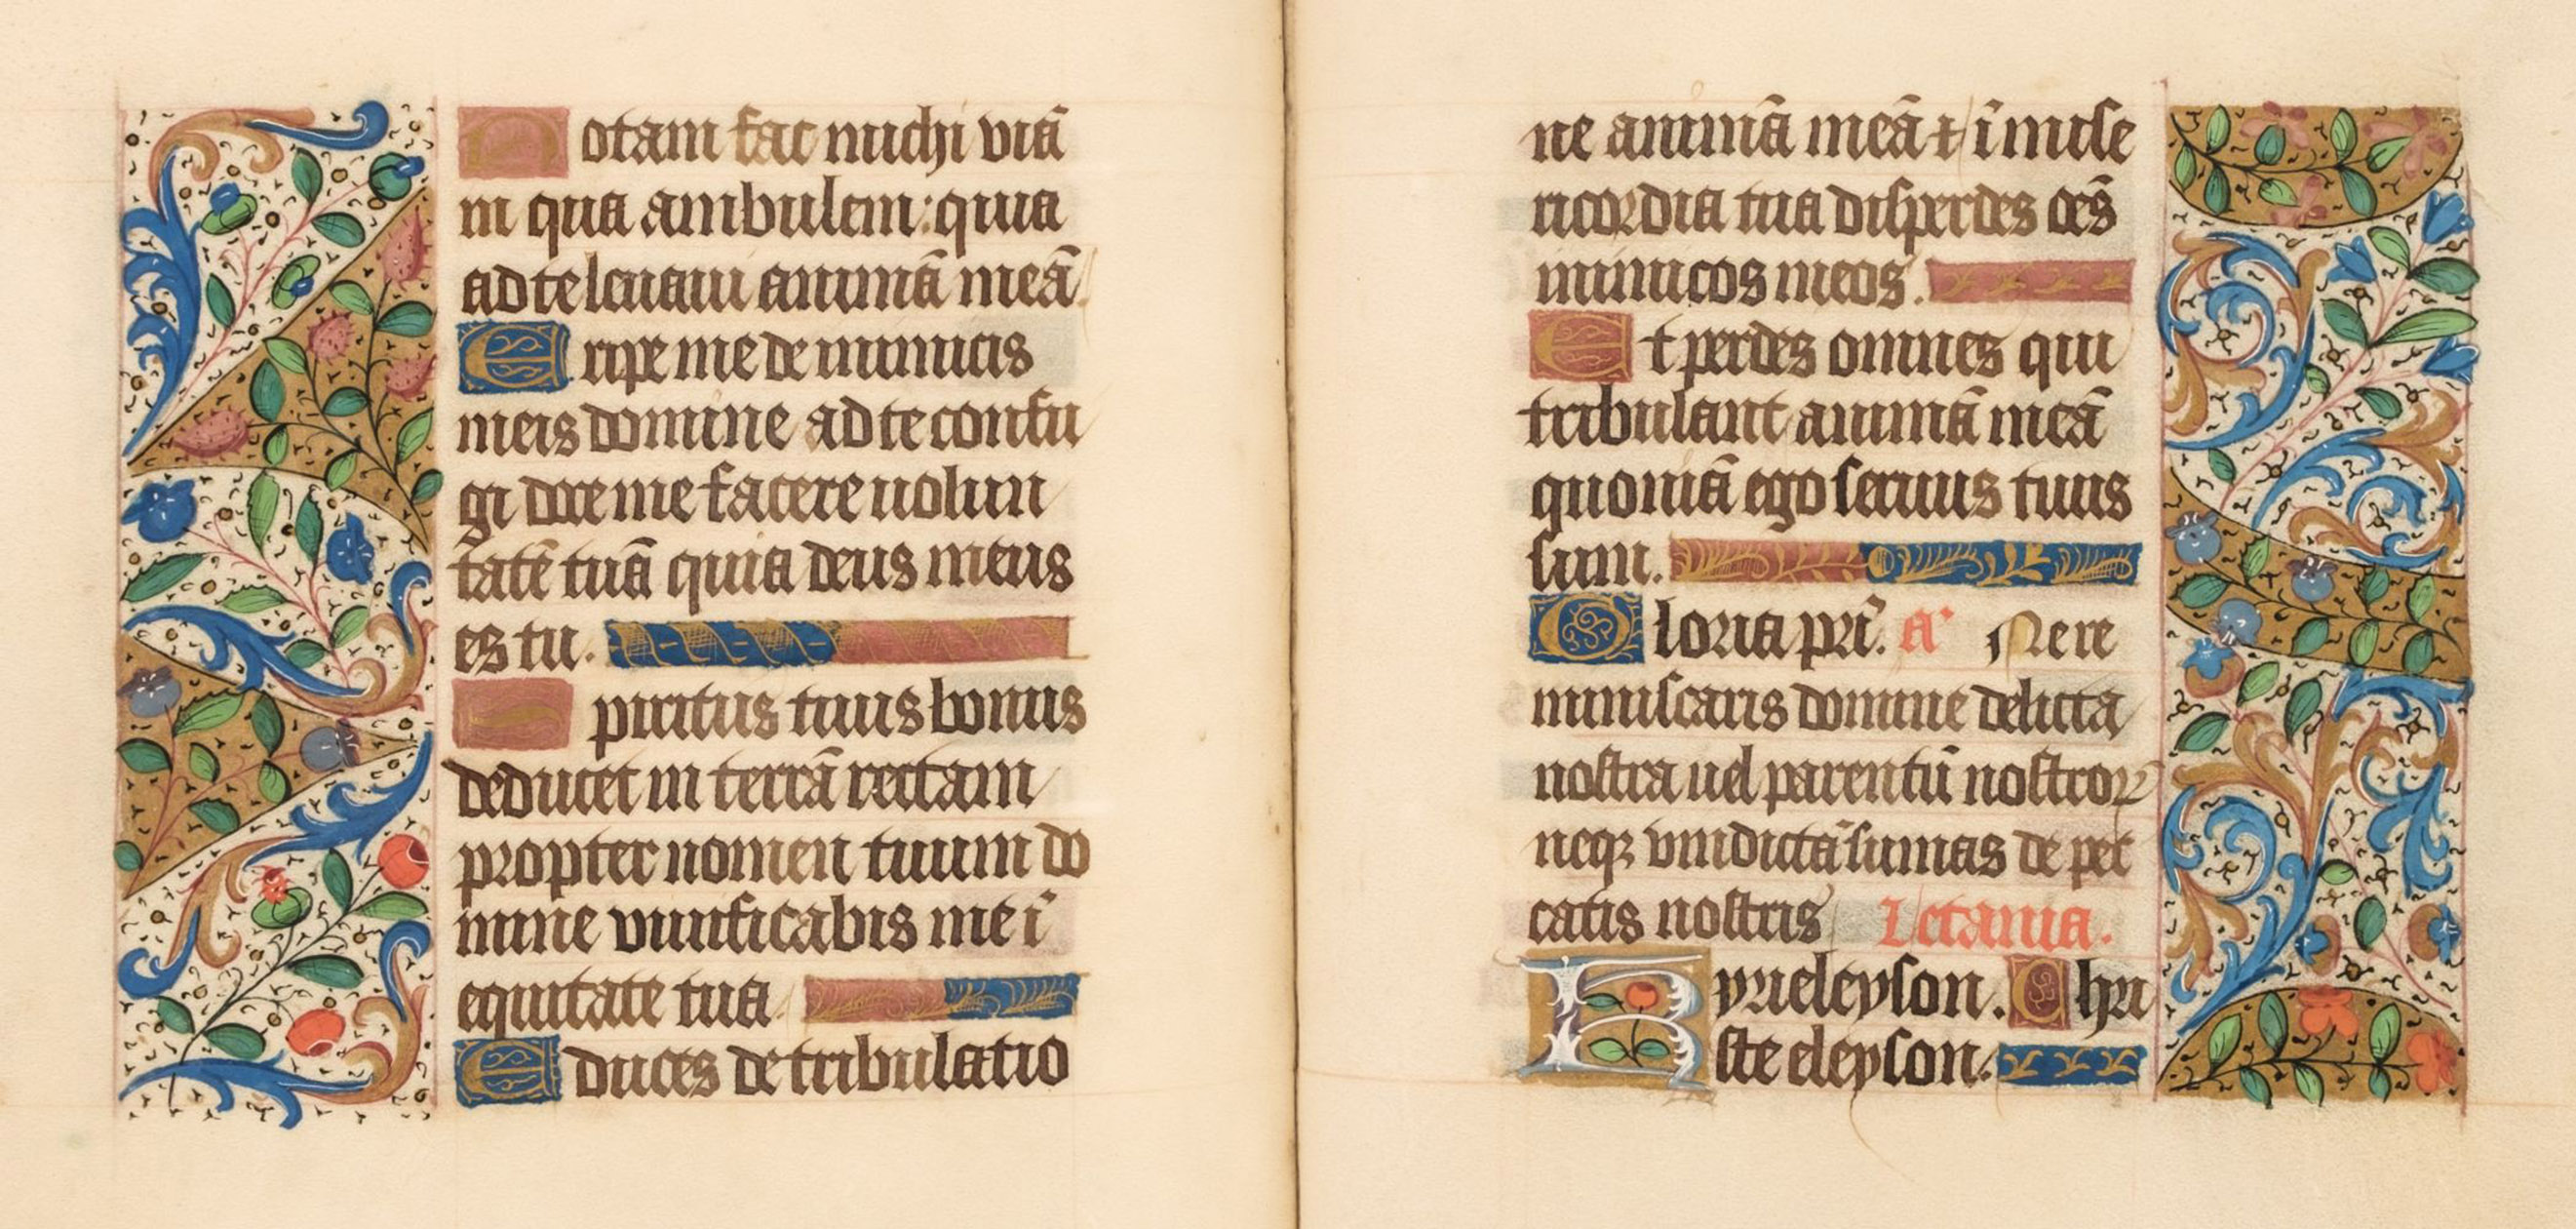 Notam fac michi viā
in qua ambulem: quia
ad te leuaui animā meā.
Eripe me de inimicis
meis domine ad te confu
gi doce me facere uolun
tatē tuā quia deus meus
es tu.
Spiritus tuus bonus
deducet in terrā rectam
propter nomen tuum do
mine viuificabis me ī
equitate tua.
Educes de tribulatio
ne animā meā ⁊ ī mise
ricordia tua disperdes oēs
inimicos meos.
Et perdes omnes qui
tribulant animā meā
quoniā ego seruus tuus
sum.
Gloria pri̅. a᷑ Ne re
miniscaris domine delicta
nostra uel parentū nostroꝝ
neqꝫ vindictā sumas de pec
catis nostris Letania.
Kyrieleyson. Chri
ste eleyson.